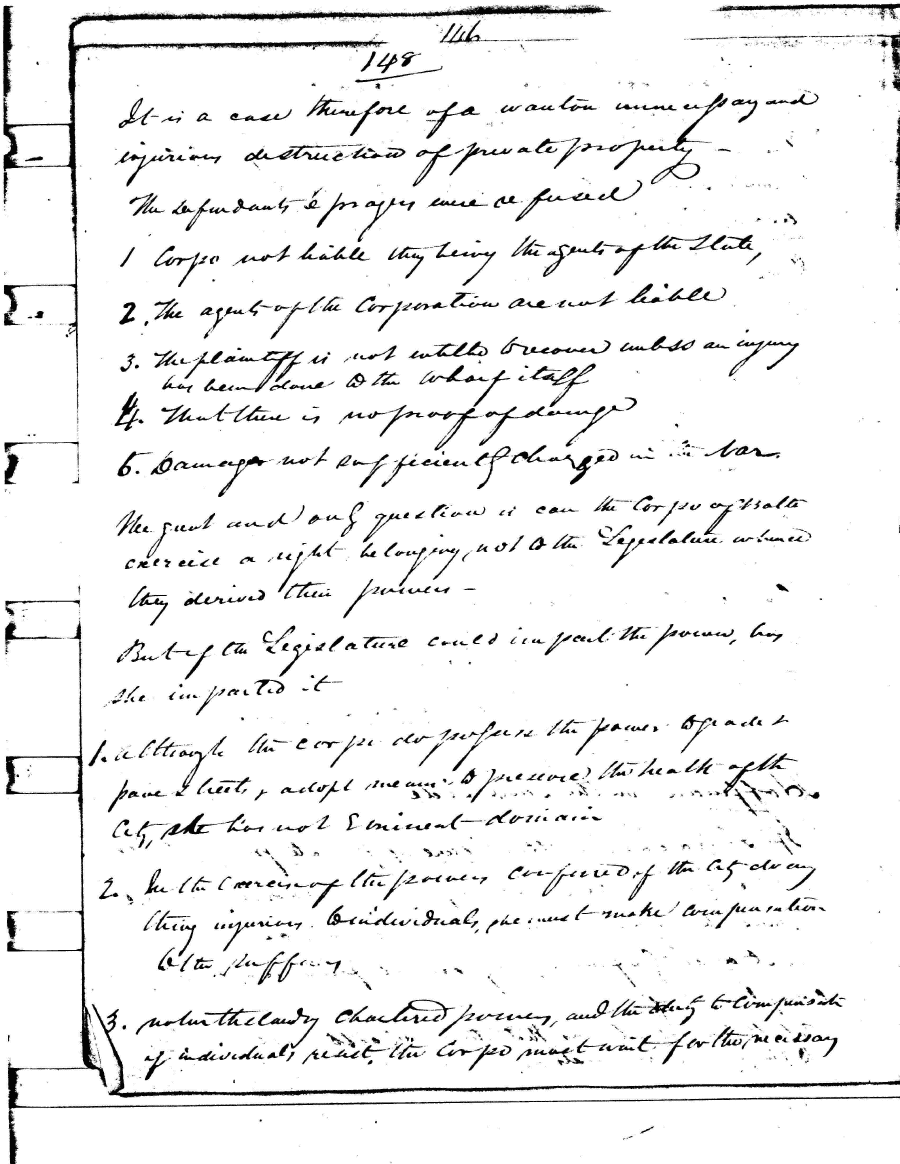 146
148
It is a case therefore of a wanton unnecessary and
injurious destruction of private property -
The defendants prayers were refused
1 Corpo not liable they being the agents of the State,
2. The agents of the Corporation are not liable
3. The plaintiff is not entitled to recover unless an injury
has been done to the wharf itself
4. That there is no proof of damage
5. Damages not sufficiently charged in the Nar.
The great and only question is can the Corpo of Balto
exercise a right belonging not to the Legislature whence
they derived their powers -
But if the Legislature could impart the power, has
she imparted it
1. Although the corpo do possess the power to grade &
pave streets, & adopt means to preserve the health of the
City, she has not Eminent domain
2. In the exercise of the powers conferred if the City do any
thing injurious to individuals, she must make compensation
to the sufferers
3. notwithstandg chartered powers, and the duty to compensate
if individuals resist, the Corpo must wait for the necessary